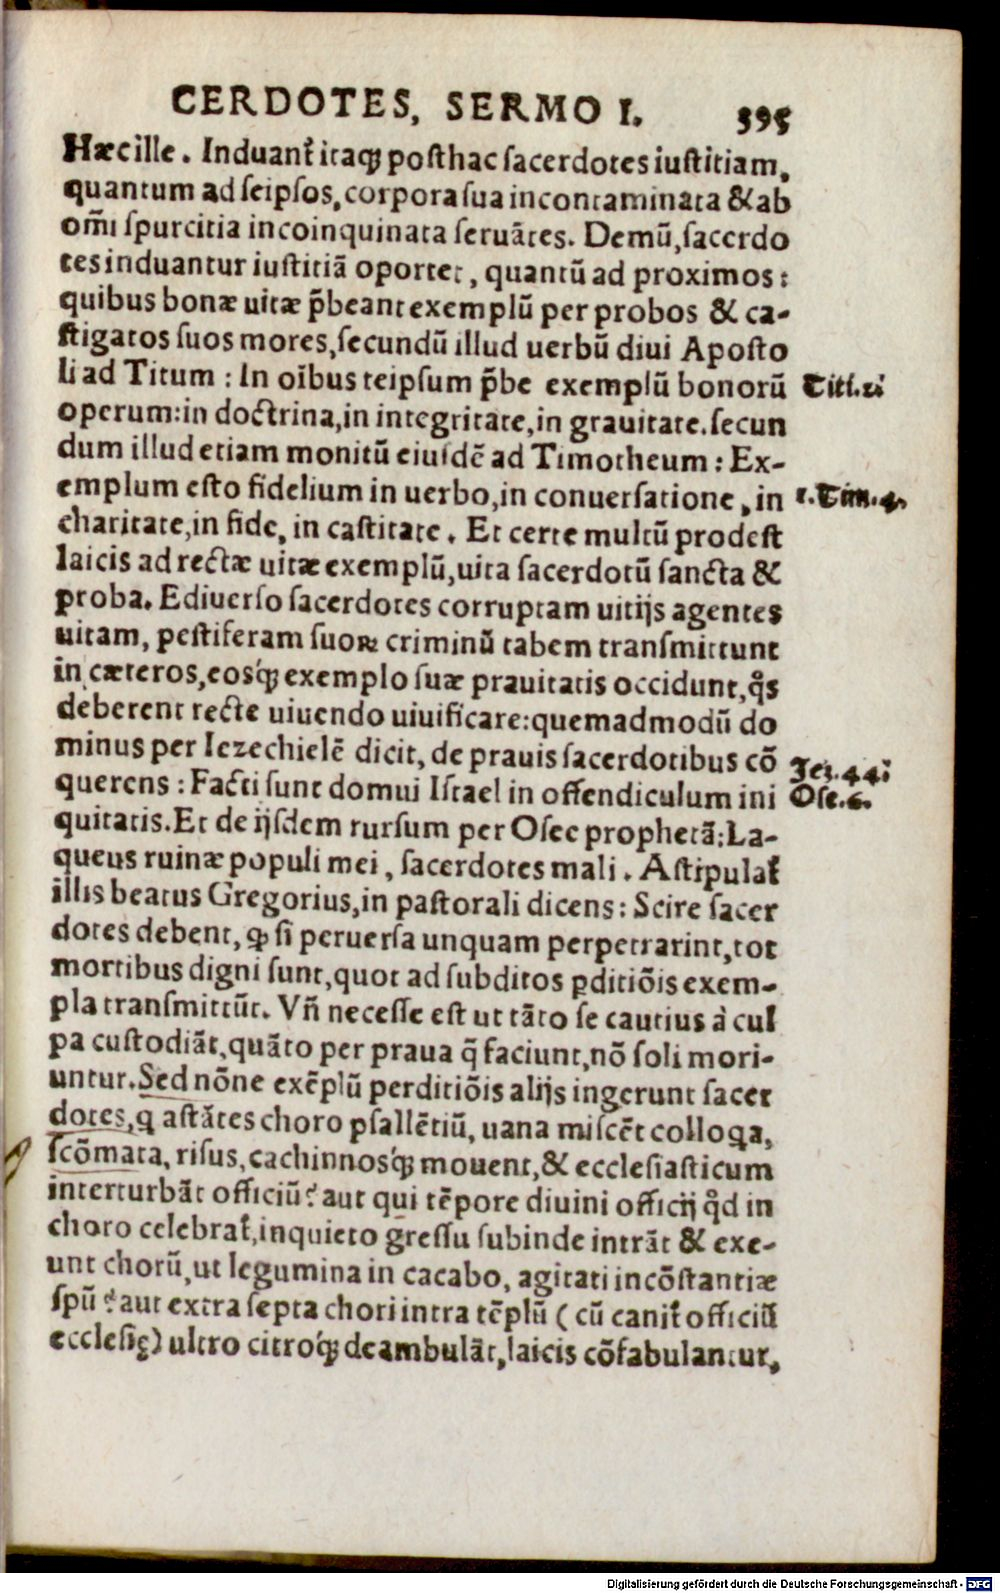 CERDOTES, SERMO I. 395
Hæc ille. Induant᷑ itaq; posthac sacerdotes iustitiam,
quantum ad seipsos, corpora sua incontaminata & ab
om̃i spurcitia incoinquinata seruātes. Demū, sacerdo
tes induantur iustitiā oportet, quantū ad proximos:
quibus bonæ uitæ p̄beant exemplū per probos & ca-
stigatos suos mores, secundū illud uerbū diui Aposto
li ad Titum: In oībus teipsum p̄be exemplū bonorū Titi.2
operum: in doctrina, in integritate, in grauitate. secun
dum illud etiam monitū eiusdē ad Timotheum: Ex-
emplum esto fidelium in uerbo, in conuersatione, in 1.Tim.4.
charitate, in fide, in castitate. Et certe multū prodest
laicis ad rectæ uitæ exemplū, uita sacerdotū sancta &
proba. E diuerso sacerdotes corruptam uitijs agentes
uitam, pestiferam suoꝝ criminū tabem transmittunt
in cæteros, eosq́; exemplo suæ prauitatis occidunt, q̊s
deberent recte uiuendo uiuificare: quemadmodū do
minus per Iezechielē dicit, de prauis sacerdotibus cō
querens: Facti sunt domui Israel in offendiculum ini Jez.44
quitatis. Et de ijsdem rursum per Osee prophetā: La- Ose.6.
queus ruinæ populi mei, sacerdotes mali. Astipulat᷑
illis beatus Gregorius, in pastorali dicens: Scire sacer
dotes debent, ꝙ si peruersa unquam perpetrarint, tot
mortibus digni sunt, quot ad subditos ꝑditiōis exem-
pla transmittūt. Vn̄ necesse est ut tāto se cautius à cul
pa custodiāt, quāto per praua q̄ faciunt, nō soli mori-
untur. Sed nōne exēplū perditiōis alijs ingerunt sacer
dotes, q astātes choro psallētiū, uana miscēt colloqa,
scōmata, risus, cachinnosq́; mouent, & ecclesiasticum
interturbāt officiū? aut qui tēpore diuini officij q̊d in
choro celebrat᷑, inquieto gressu subinde intrāt & exe-
unt chorū, ut legumina in cacabo, agitati incōstantiæ
spū? aut extra septa chori intra tēplū (cū canit᷑ officiū
ecclesię) ultro citroq́; deambulāt, laicis cōfabulantur,
Digitalisierung gefördert durch die Deutsche Forschungsgemeinschaft - DFG